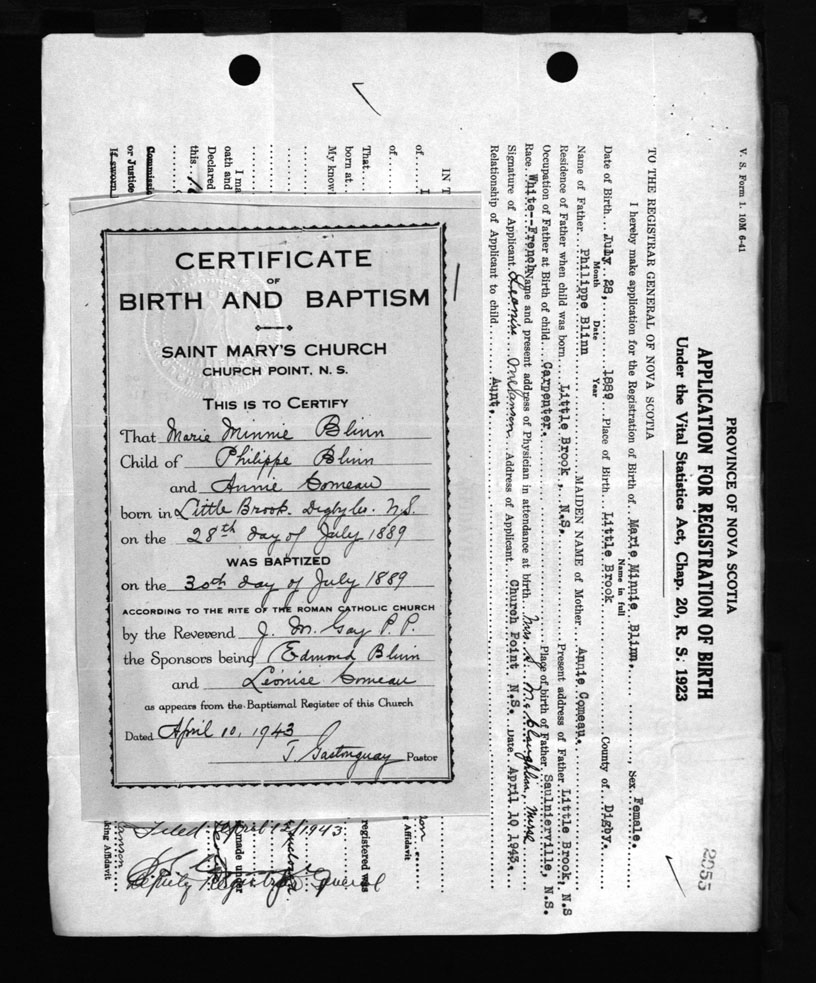 CERTIFICATE
OF
BIRTH AND BAPTISM
SAINT MARY'S CHURCH
CHURCH POINT, N. S.
THIS IS TO CERTIFY
That Marie Minnie Blinn
Child of Philippe Blinn
and Annie Comeau
born in Little Brook. Digby Co. N.S.
on the 28th day of July 1889
WAS BAPTIZED
on the 30th day of July 1889
ACCORDING TO THE RITE OF THE ROMAN CATHOLIC CHURCH
by the Reverend J. M. Gay P.P.
the Sponsors being Edmond Blinn
and Léonise Comeau
as appears from the Baptismal Register of this Church
Dated April 10, 1943
J. Gastonguay Pastor
V. S. Form 1. 10M 6-41
PROVINCE OF NOVA SCOTIA
APPLICATION FOR REGISTRATION OF BIRTH
Under the Vital Statistics Act, Chap. 20, R. S. 1923
2055
TO THE REGISTRAR GENERAL OF NOVA SCOTIA
I hereby make application for the Registration of Birth of Marie Minnie Blinn., Sex Female.
Name in full
Date of Birth July 28, 1889 Place of Birth Little Brook County of Digby.
Month Date Year
Name of Father Philippe Blinn MAIDEN NAME of Mother Annie Comeau.
Residence of Father when child was born Little Brook, N.S. Present address of Father Little Brook, N.S
Occupation of Father at Birth of child Carpenter. Place of birth of Father Saulnierville, N.S.
Race White--French Name and present address of Physician in attendance at birth Mrs McLaughlin,
Signature of Applicant Address of Applicant Church Point N.S. Date April 10 1943.
Relationship of Applicant to child Aunt.
IN T
I
of
of
That
born at
My knowl
I ma
oath and
Declared
this
Commissi
or Justice
If sworn
registered was
made under
king Affidavit
Filed April 15/1943
Deputy Registrar General